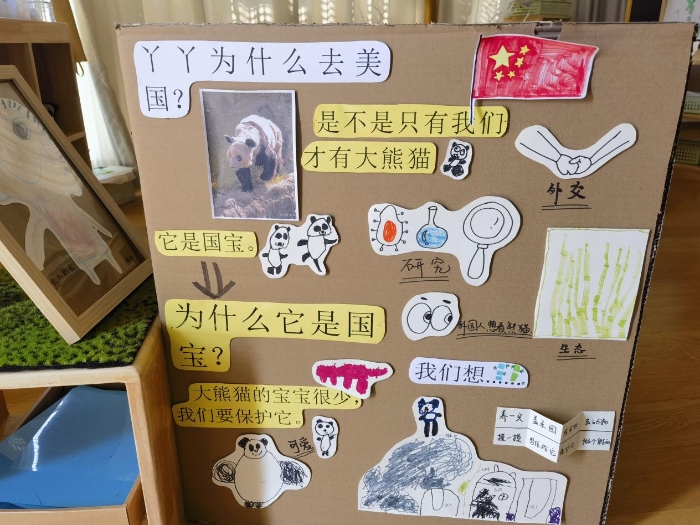 丫丫为什么去美
国?
是不是只有我们
才有大熊猫
外交
它是国宝。
研究
为什么它是国
宝?
外国人想看熊猫
生态
大熊猫的宝宝很少,
我们要保护它。
我们想......
可爱
养一只
摸一摸